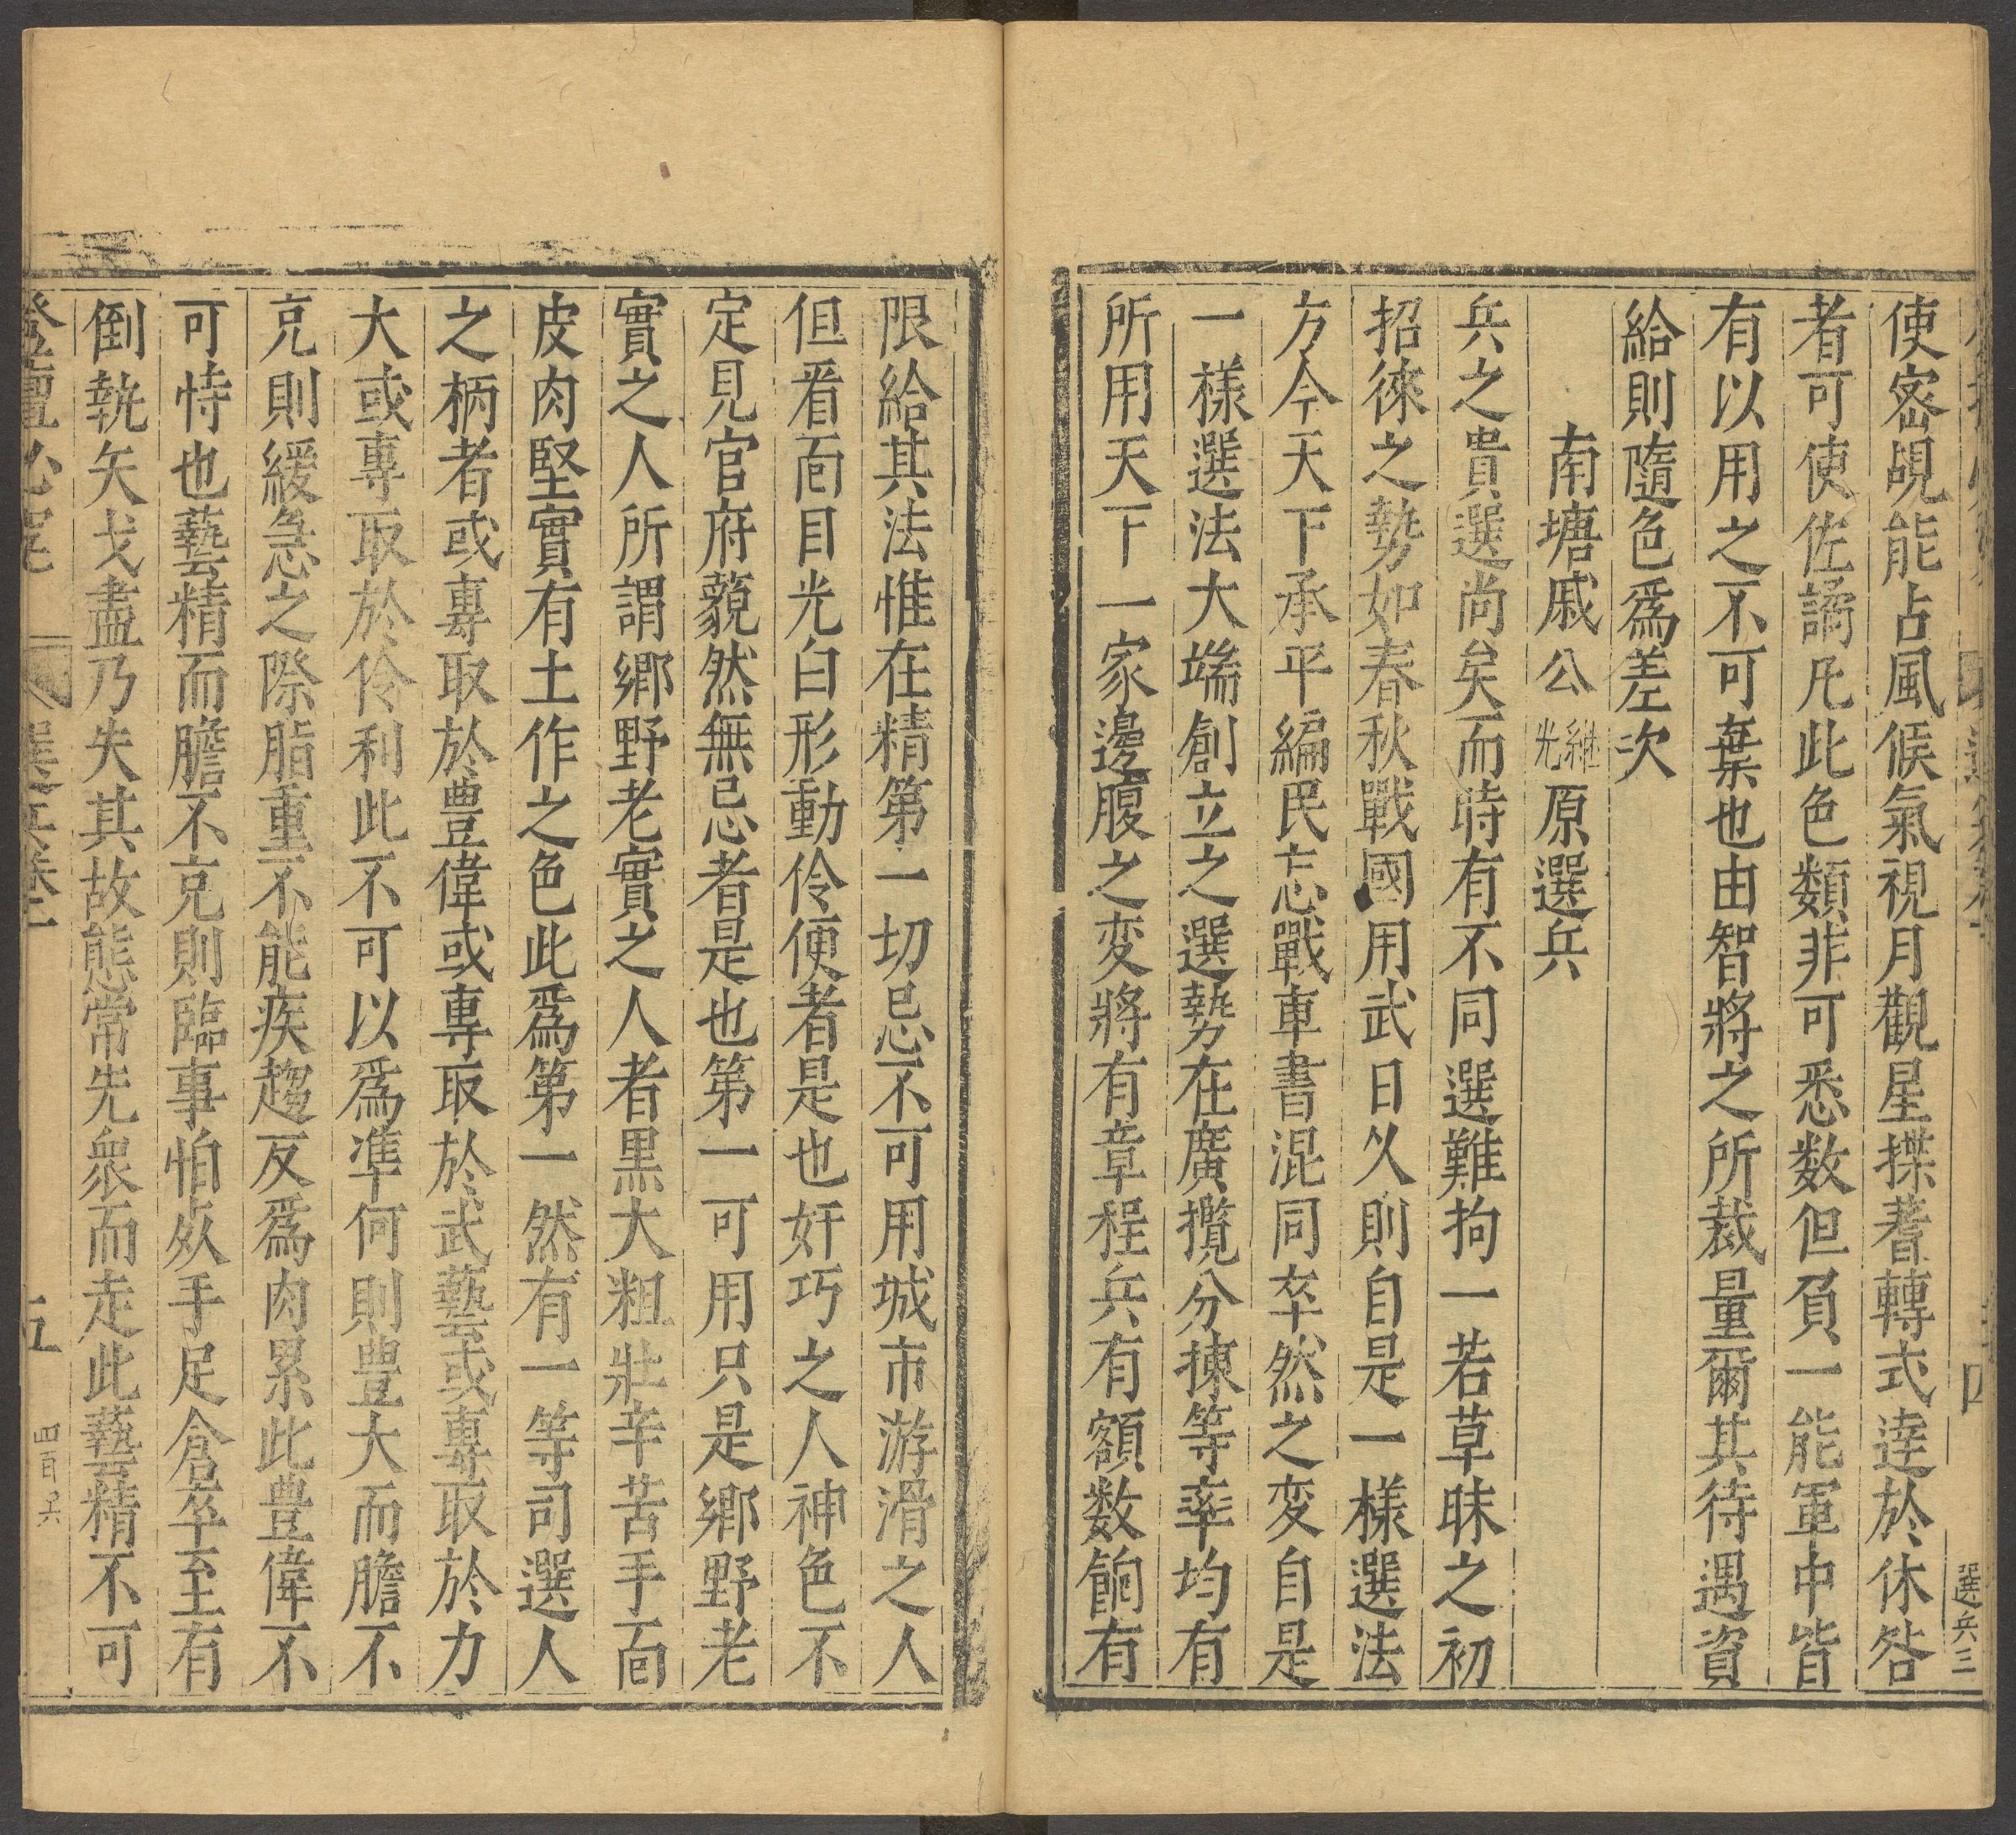 選兵三
使宻覘能占風候氣視月觀星揲蓍轉式逹於休咎
者可使佐譎凡此色類非可悉数但負一能軍中皆
有以用之不可葉也由智將之所裁量爾其待遇資
給則隨色爲差次
南塘戚公繼光原選兵
兵之貴選尚矣而時有不同選難拘一若草昧之初
招徠之勢如春秋戰國用武日久則自是一樣選法
方今天下承平編民忘戰車書混同卒然之変自是
一樣選法大端創立之選勢在廣攬分揀等率均有
所用天下一家邊腹之変將有章程兵有額数餉有
限給其法惟在精第一切忌不可用城市游滑之人
但看面目光白形動伶便者是也奸巧之人神色不
定見官府藐然無忌者是也第一可用只是鄉野老
實之人所謂鄉野老實之人者黒大粗壯辛苦手面
皮肉堅實有土作之色此爲第一然有一等司選人
之柄者或專取於豊偉或專取於武藝或專取於力
大或專取於伶利此不可以爲準何則豊大而膽不
充則緩急之際脂重不能疾趨反爲肉累此豊偉不
可恃也藝精而膽不充則臨事怕死手足倉卒至有
倒執矢戈盡乃失其故態常先衆而走此藝精不可
登壇必究 選兵卷十 五